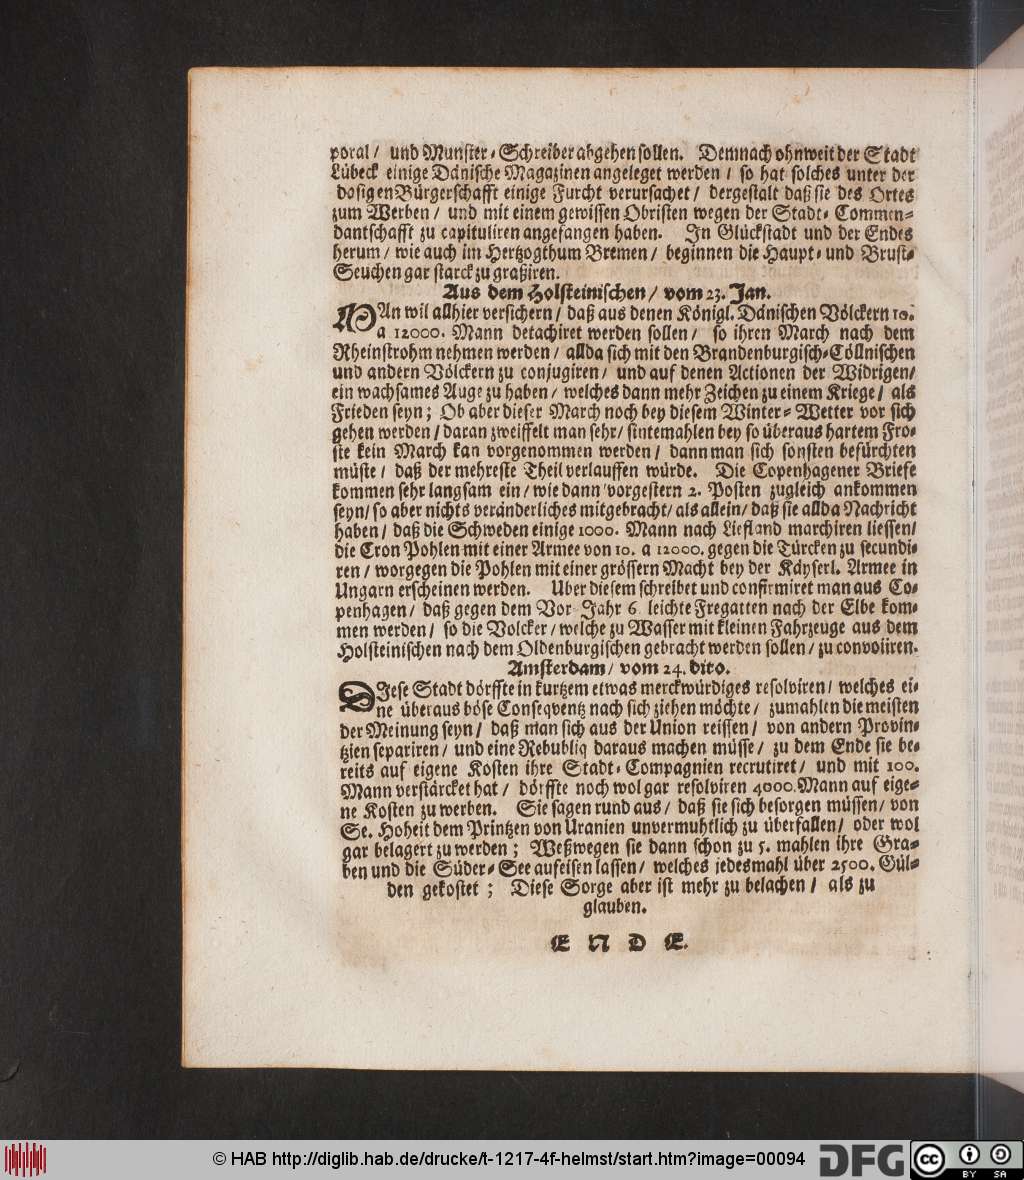 poral / und Munster-Schreiber abgehen sollen. Demnach ohnweit der Stadt
Lübeck einige Dänische Magazinen angeleget werden / so hat solches unter der
dosigen Bürgerschafft einige Furcht verursachet / dergestalt daß sie des Ortes
zum Werben / und mit einem gewissen Obristen wegen der Stadt-Commen-
dantschafft zu capituliren angefangen haben. In Glückstadt und der Endes
herum / wie auch im Hertzogthum Bremen / beginnen die Haupt- und Brust-
Seuchen gar starck zu graßiren.
Aus dem Holsteinischen / vom 23. Jan.
MAn wil allhier versichern / daß aus denen Königl. Dänischen Völckern 10.
a 12000. Mann detachiret werden sollen / so ihren March nach dem
Rheinstrohm nehmen werden / allda sich mit den Brandenburgisch-Cöllnischen
und andern Völckern zu conjugiren / und auf denen Actionen der Widrigen /
ein wachsames Auge zu haben / welches dann mehr Zeichen zu einem Kriege / als
Frieden seyn ; Ob aber dieser March noch bey diesem Winter-Wetter vor sich
gehen werden / daran zweiffelt man sehr / sintemahlen bey so überaus hartem Fro-
ste kein March kan vorgenommen werden / dann man sich sonsten befürchten
müste / daß der mehreste Theil verlauffen würde. Die Copenhagener Briefe
kommen sehr langsam ein / wie dann vorgestern 2. Posten zugleich ankommen
seyn / so aber nichts veränderliches mitgebracht / als allein / daß sie allda Nachricht
haben / daß die Schweden einige 1000. Mann nach Liefland marchiren liessen /
die Cron Pohlen mit einer Armee von 10. a 12000. gegen die Türcken zu secundi-
ren / worgegen die Pohlen mit einer grössern Macht bey der Käyserl. Armee in
Ungarn erscheinen werden. Uber diesem schreibet und confirmiret man aus Co-
penhagen / daß gegen dem Vor Jahr 6 leichte Fregatten nach der Elbe kom-
men werden / so die Volcker / welche zu Wasser mit kleinen Fahrzeuge aus dem
Holsteinischen nach dem Oldenburgischen gebracht werden sollen / zu convoiiren.
Amsterdam / vom 24. dito.
DIese Stadt dörffte in kurtzem etwas merckwürdiges resolviren / welches ei-
ne überaus böse Conseqventz nach sich ziehen möchte / zumahlen die meisten
der Meinung seyn / daß man sich aus der Union reissen / von andern Provin-
tzien separiren / und eine Rebubliq daraus machen müsse / zu dem Ende sie be-
reits auf eigene Kosten ihre Stadt-Compagnien recrutiret / und mit 100.
Mann verstärcket hat / dörffte noch wol gar resolviren 4000. Mann auf eige-
ne Kosten zu werben. Sie sagen rund aus / daß sie sich besorgen müssen / von
Se. Hoheit dem Printzen von Uranien unvermuhtlich zu überfallen / oder wol
gar belagert zu werden ; Weßwegen sie dann schon zu 5. mahlen ihre Gra-
ben und die Süder-See aufeisen lassen / welches jedesmahl über 2500. Gül-
den gekostet ; Diese Sorge aber ist mehr zu belachen / als zu
glauben.
E N D E.
© HAB http://diglib.hab.de/drucke/t-1217-4f-helmst/start.htm?image=00094
DFG
cc
BY SA